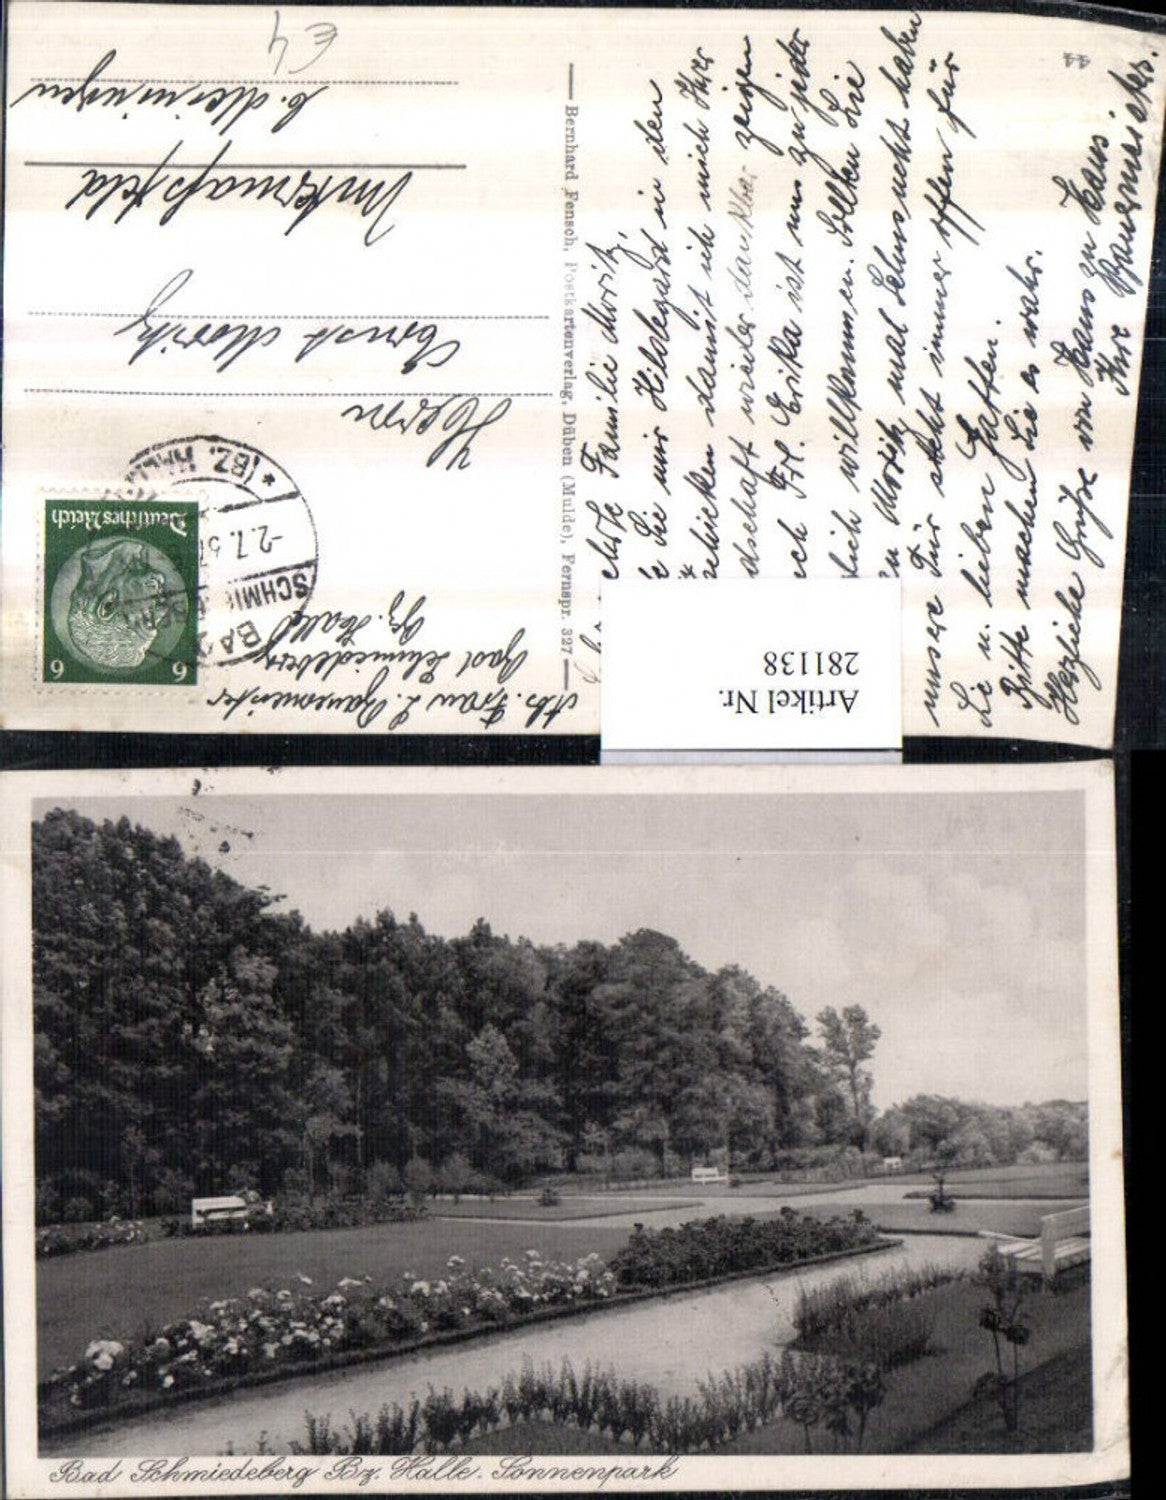 €4
Abs. Frau L. Bauermeister
Bad Schmiedeberg
Bz. Halle
Deutsches Reich
6 6
BAD SCHMIEDEBERG
-2.7.37
* (BZ. HALLE)
Herrn
Ernst Moritz
Untermaßfeld
b. Meiningen
Bernhard Fensch, Postkartenverlag, Düben (Mulde), Fernspr. 327
Familie Moritz,
Sie mir Hildegard in den
schicken damit ich mich Ihrer
wieder dankbar zeigen
Frl. Erika ist uns zu jeder
willkommen. Sollten Sie
Moritz mal Sehnsucht haben
unsere Tür steht immer offen für
Sie u. lieben Gatten.
Bitte machen Sie es wahr.
Herzliche Grüße von Haus zu Haus
Ihre Bauermeister.
Artikel Nr.
281138
Bad Schmiedeberg Bz. Halle. Sonnenpark